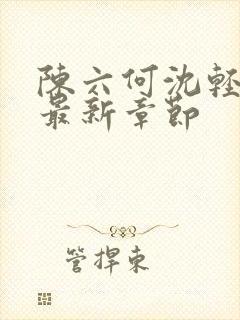 陳六何沈輕
最新章節
管捍東